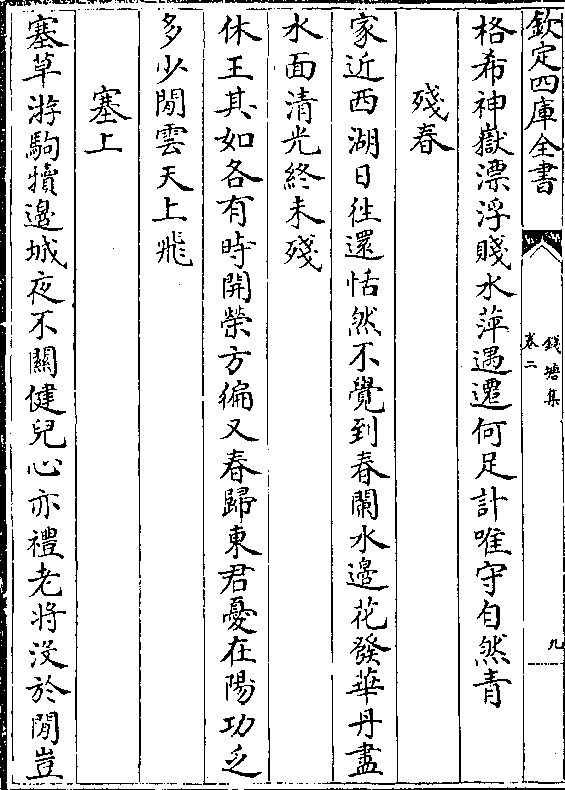 欽定四庫全書
錢塘集
卷二
九
格希神嶽漂浮賤水萍遇遷何足計唯守自然青
殘春
家近西湖日往還恬然不覺到春闌水邊花發華丹盡
水面清光終未殘
休王其如各有時開榮方徧又春歸東君憂在陽功乏
多少閒雲天上飛
塞上
塞草游駒犢邊城夜不關健兒心亦禮老將沒於閒豈